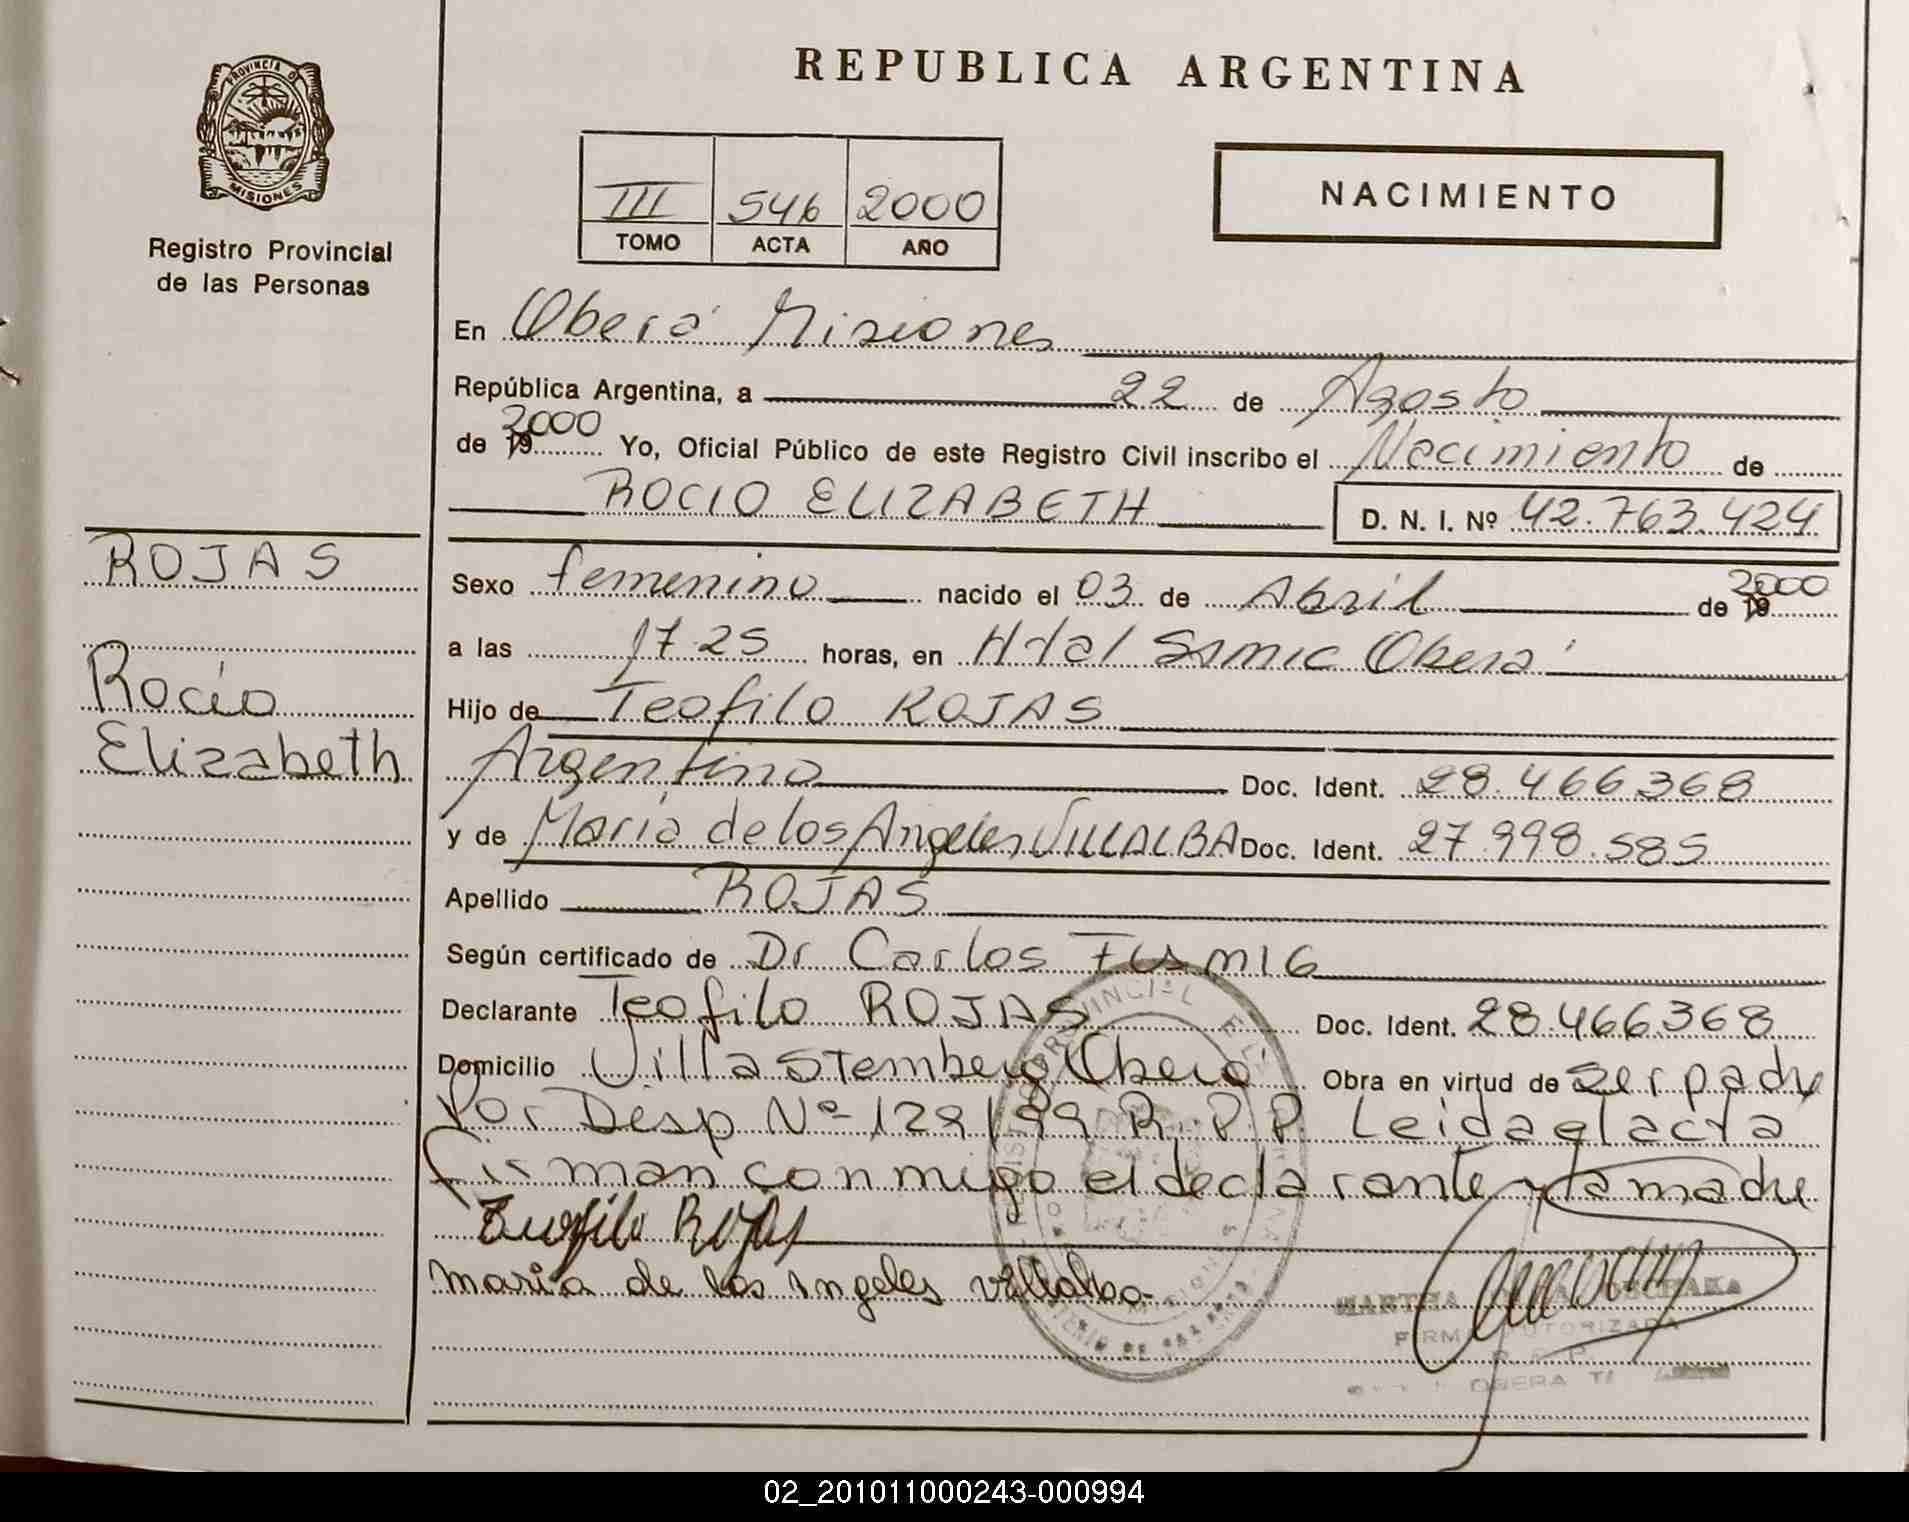 PROVINCIA DE
MISIONES
Registro Provincial
de las Personas
ROJAS
Rocio
Elizabeth
REPUBLICA ARGENTINA
III 546 2000
TOMO ACTA AÑO
NACIMIENTO
En Oberá Misiones
República Argentina, a 22 de Agosto
de 19 2000 Yo, Oficial Público de este Registro Civil inscribo el Nacimiento de
ROCIO ELIZABETH D. N. I. Nº 42.763.424
Sexo femenino nacido el 03 de Abril de 19 2000
a las 17.25 horas, en Htal Samic Oberá
Hijo de Teofilo ROJAS
Argentina Doc. Ident. 28.466.368
y de María de los Angeles VILLALBA Doc. Ident. 27.998.585
Apellido ROJAS
Según certificado de Dr Carlos
Declarante Teofilo ROJAS Doc. Ident. 28.466.368
Domicilio Villa Stemberg Oberá Obra en virtud de ser padre
Por Desp Nº 129/99 R.P.P. Leida el acta
firman conmigo el declarante y la madre
Teofilo Rojas
maria de los angeles villalba
MARTHA
FIRMA AUTORIZADA
R.P.P.
OBERA
02_201011000243-000994